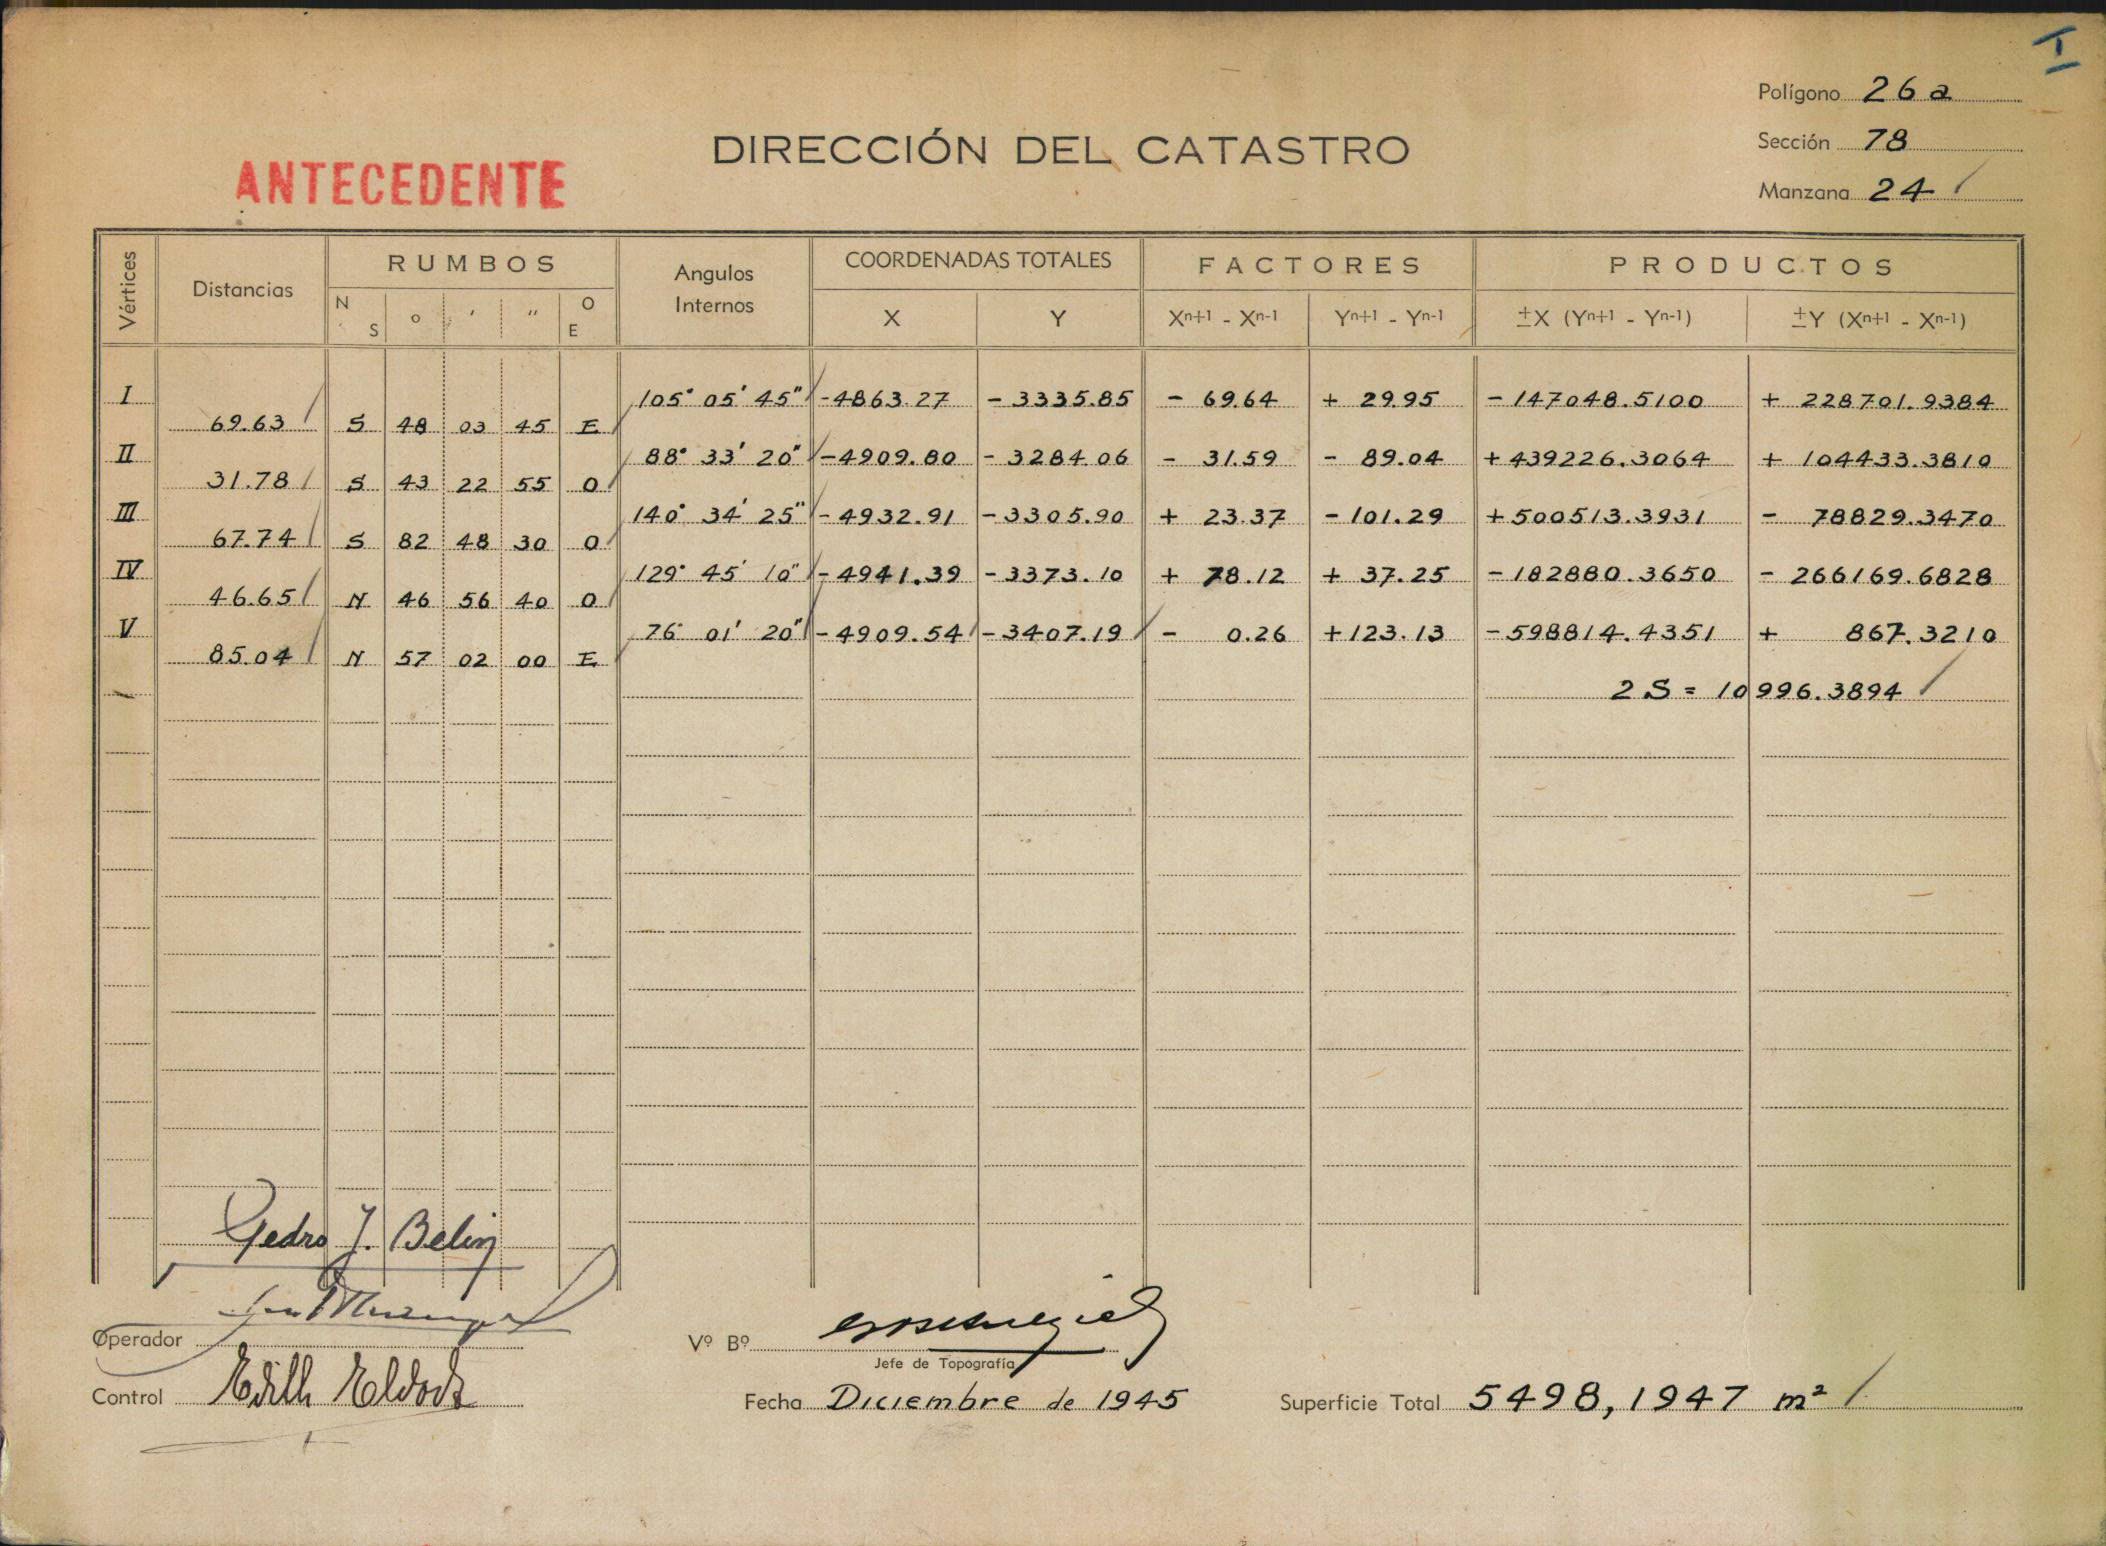 I
Polígono 26a
DIRECCIÓN DEL CATASTRO
Sección 78
ANTECEDENTE
Manzana 24
Vértices Distancias RUMBOS Angulos Internos COORDENADAS TOTALES FACTORES PRODUCTOS
N S o ' " O E X Y Xn+1 - Xn-1 Yn+1 - Yn-1 ±X (Yn+1 - Yn-1) ±Y (Xn+1 - Xn-1)
I 105° 05' 45" -4863.27 - 3335.85 - 69.64 + 29.95 - 147048.5100 + 228701.9384
69.63 S 48 03 45 E
II 88° 33' 20" -4909.80 - 3284.06 - 31.59 - 89.04 +439226.3064 + 104433.3810
31.78 S 43 22 55 O
III 140° 34' 25" -4932.91 -3305.90 + 23.37 -101.29 +500513.3931 - 78829.3470
67.74 S 82 48 30 O
IV 129° 45' 10" -4941.39 -3373.10 + 78.12 + 37.25 -182880.3650 - 266169.6828
46.65 N 46 56 40 O
V 76° 01' 20" -4909.54 -3407.19 - 0.26 +123.13 -598814.4351 + 867.3210
85.04 N 57 02 00 E
2S = 10996.3894
Pedro J. Belin
Operador
Vº Bº
Jefe de Topografía
Control Edith
Fecha Diciembre de 1945
Superficie Total 5498,1947 m²